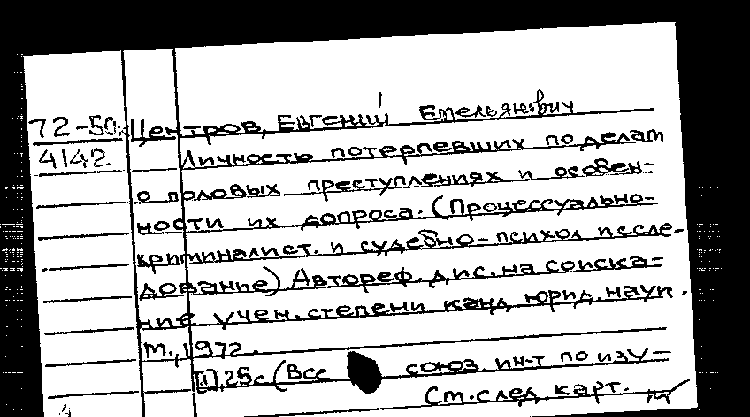 72-50 Центров, Евгений Емельянович
4142. Личность потерпевших по делам
о половых преступлениях и особен-
ности их допроса. (Процессуально-
криминалист. и судебно-психол. иссле-
дование) Автореф. дис. на соиска-
ние учен. степени канд. юрид. наук.
М., 1972.
[1], 25 с. (Все союз. ин-т по изу-
См. след. карт.